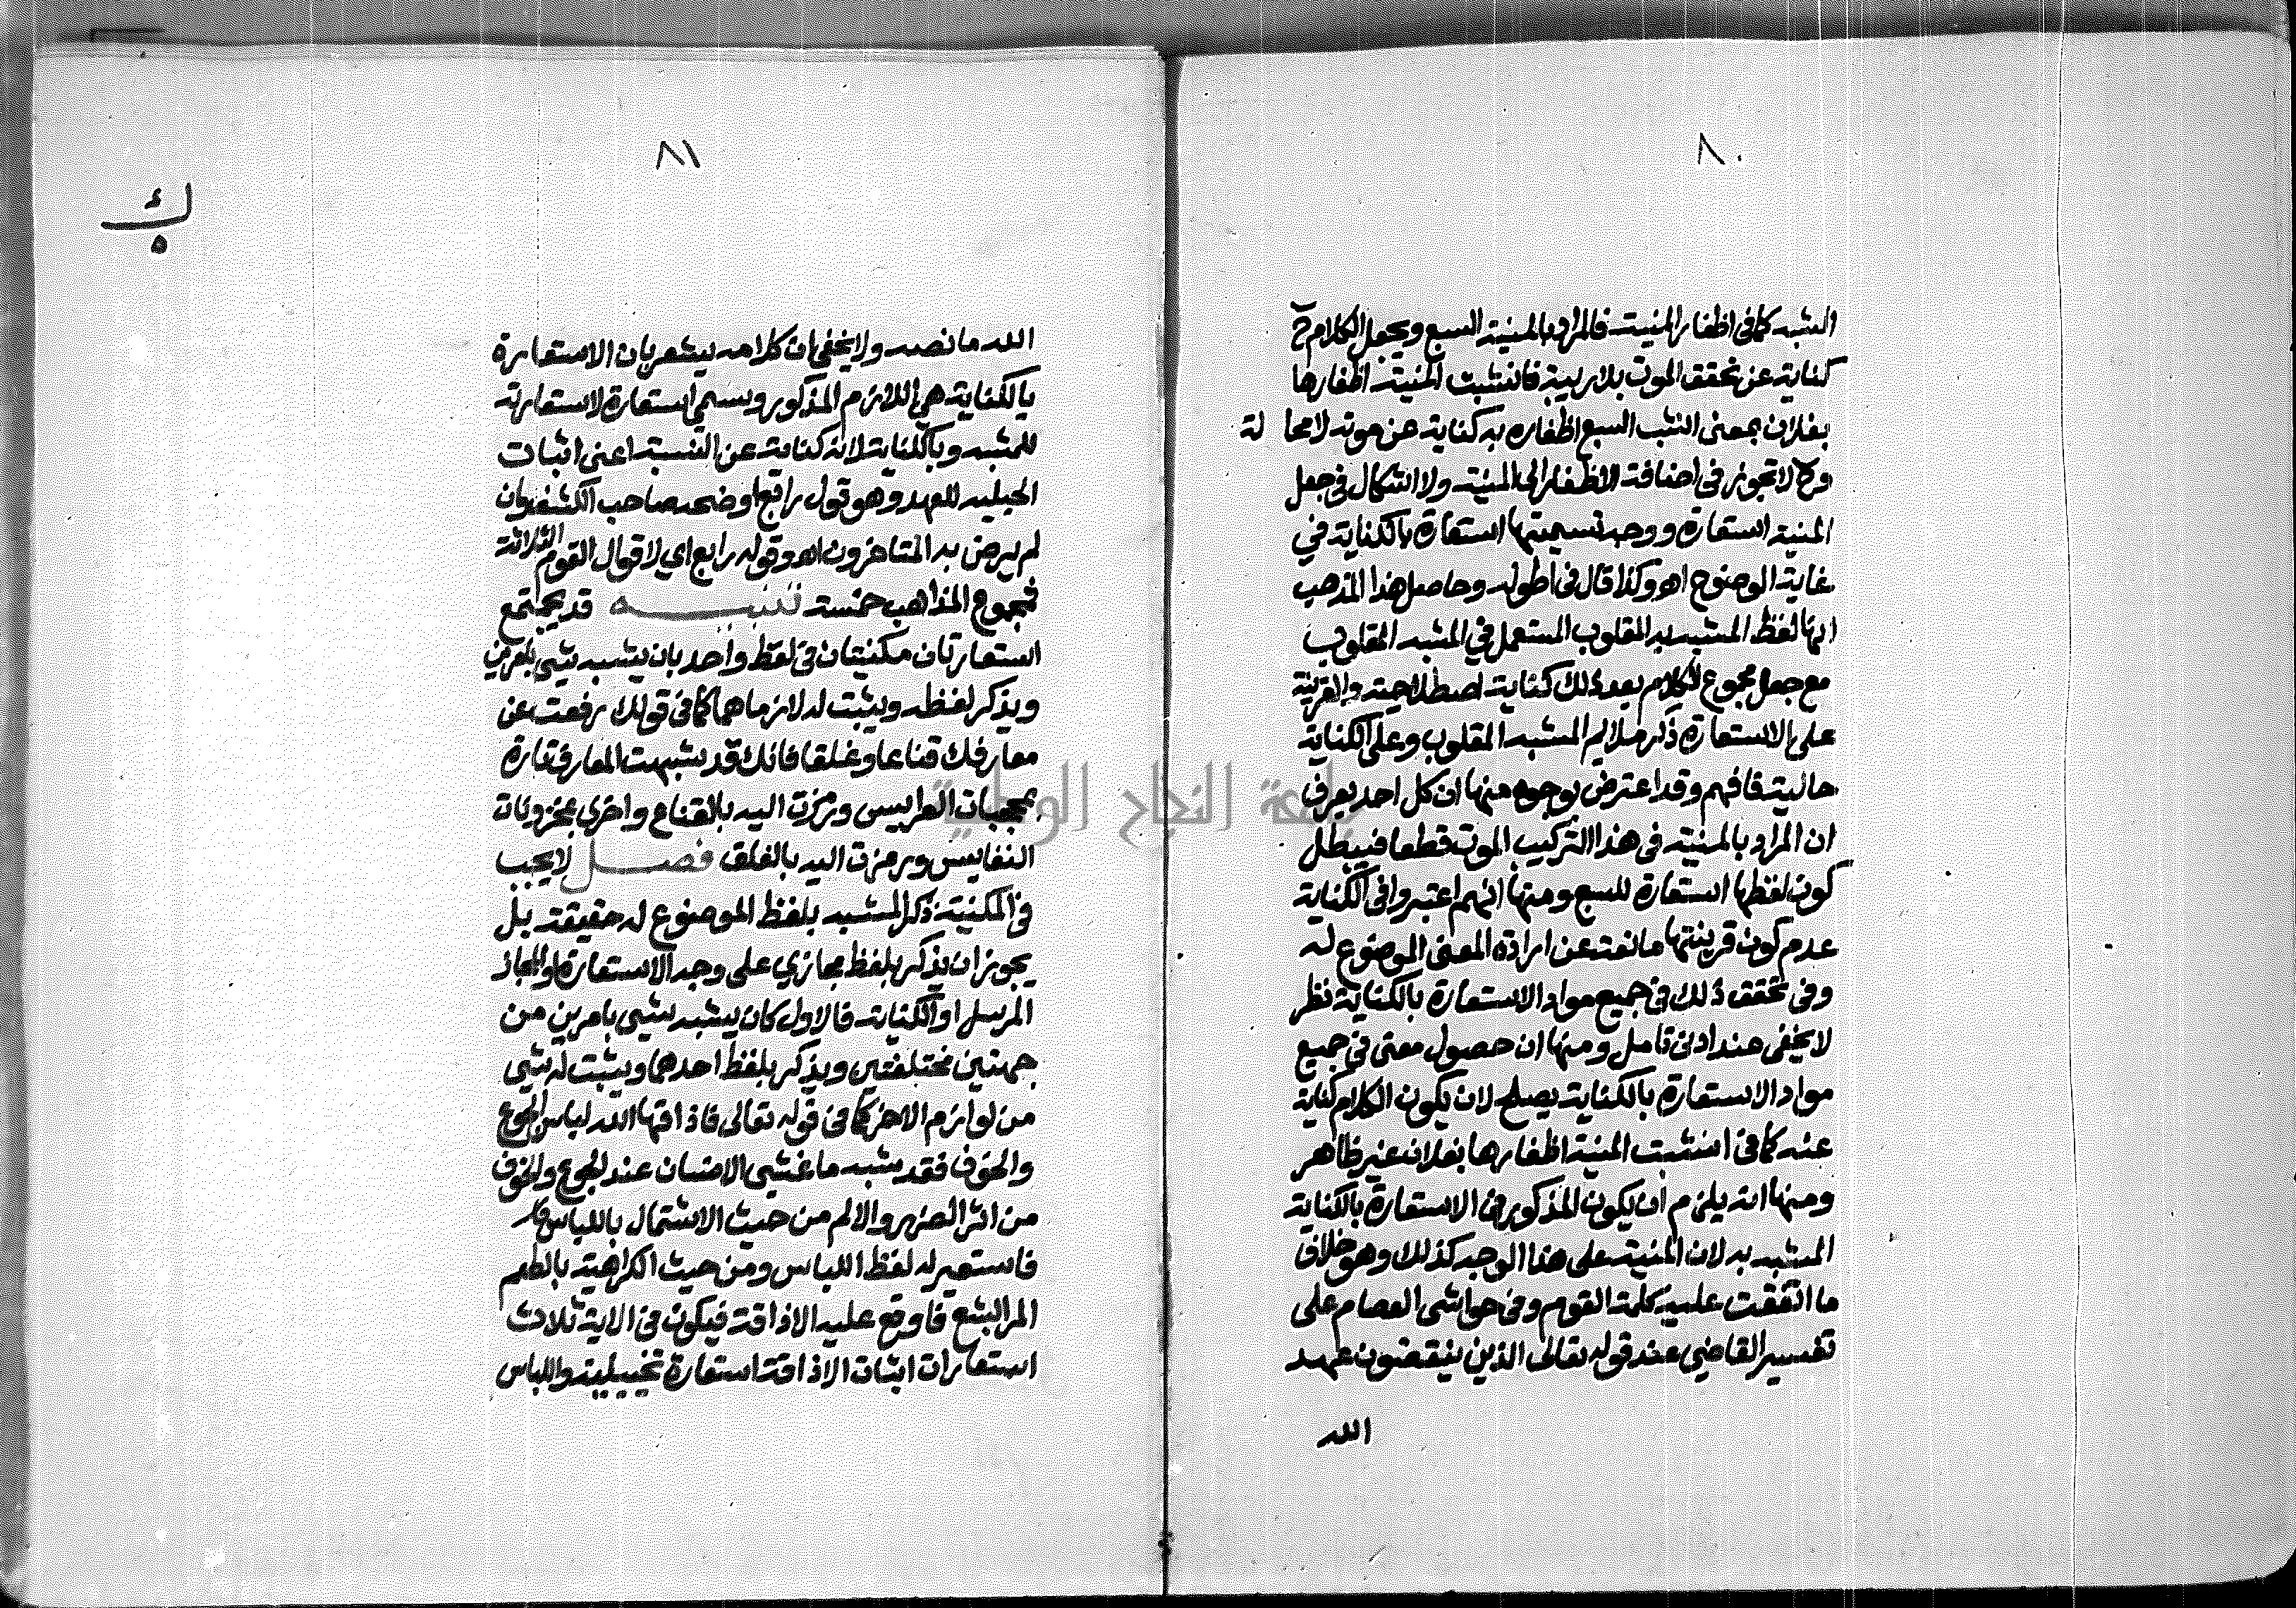 ٨٠
المشبه كما في اظفار المنية فالمراد بالمنية السبع ويجعل الكلام ح
كناية عن تحقق الموت بلا ريبة فانشبت المنية اظفارها
بفلان بمعنى انشب السبع اظفاره به كناية عن موته لا محالة
وح لا تجوز في اضافة الاظفار الى المنية ولا اشكال في جعل
المنية استعارة ووجه تسميتها استعارة بالكناية في
غاية الوضوح اه وكذا قال في اطوله وحاصل هذا المذهب
انها لفظ المشبه به المقلوب المستعمل في المشبه المقلوب
مع جعل مجموع الكلام بعد ذلك كناية اصطلاحية والقرينة
على الاستعارة ذكر ملايم المشبه المقلوب وعلى الكناية
حالية فافهم وقد اعترض بوجوه منها ان كل احد يعرف
ان المراد بالمنية في هذا التركيب الموت قطعا فيبطل
كون لفظها استعارة للسبع ومنها انهم اعتبروا في الكناية
عدم كون قرينتها مانعة عن ارادة المعنى الموضوع له
وفي تحقق ذلك في جميع مواد الاستعارة بالكناية نظر
لا يخفى عند ادنى تامل ومنها ان حصول معنى في جميع
مواد الاستعارة بالكناية يصلح لان يكون الكلام كناية
عنه كما في انشبت المنية اظفارها بفلان غير ظاهر
ومنها انه يلزم ان يكون المذكور في الاستعارة بالكناية
المشبه به لان المنية على هذا الوجه كذلك وهو خلاف
ما اتفقت عليه كلمة القوم وفي حواشي العصام على
تفسير القاضي عند قوله تعالى الذين ينقضون عهد
الله
٨١
ك
٥
الله ما نصه ولا يخفى ان كلامه يشعر بان الاستعارة
بالكناية هي اللازم المذكور وسمي استعارة لاستعارته
للمشبه وبالكناية لانه كناية عن النسبة اعني اثبات
الحبليه للعهد وهو قول رابع اوضحه صاحب الكشف وان
لم يرض به المتاخرون اه وقوله رابع اي لاقوال القوم الثلاثة
فمجموع المذاهب خمسة تنبيه قد يجتمع
استعارتان مكنيتان في لفظ واحد بان يشبه شي بامرين
ويذكر لفظه ويثبت له لازماهما كما في قولك رفعت عن
معارفك قناعا وغلقا فانك قد شبهت المعارف تارة
بمحجبات العرايس ورمزت اليه بالقناع واخرى بمخزونات
النفايس ورمزت اليه بالغلق فصل لا يجب
في المكنية ذكر المشبه بلفظ الموضوع له حقيقة بل
يجوز ان يذكر بلفظ مجازي على وجه الاستعارة او المجاز
المرسل او الكناية فالاول كان يشبه شي بامرين من
جهتين مختلفتين ويذكر بلفظ احدهما ويثبت له شي
من لوازم الاخر كما في قوله تعالى فاذاقها الله لباس الجوع
والخوف فقد شبه ما غشي الانسان عند الجوع والخوف
من اثر الضرر والالم من حيث الاشتمال باللباس
فاستعير له لفظ اللباس ومن حيث الكراهية بالطعم
المر البشع فاوقع عليه الاذاقة فيكون في الاية ثلاث
استعارات اثبات الاذاقة استعارة تخييلية واللباس
جامعة النجاح الوطنية